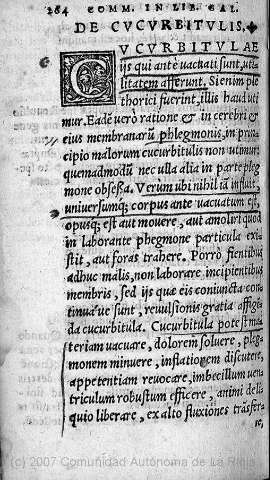 264 COMM. IN LIB. GAL.
DE CVCVRBITVLIS.
CVCVRBITVLAE
ijs qui ante vacuati sunt, vti
litatem afferunt. Si enim ple
thorici fuerint, illis haud uti
mur. Eadẽ verò ratione & in cerebri &
eius membranarũ phlegmonis, in prin
cipio malorum cucurbitulis non utimur
quemadmodũ nec ulla alia in parte pleg
mone obsessa. Verum ubi nihil iã influit,
universumq; corpus ante vacuatum est,
opusq; est aut movere, aut amoliri quod
in laborante phegmone particula exi
stit, aut foras trahere. Porrò fientibus
adhuc malis, non laborare incipientibus
membris, sed ijs quæ eis coniuncta con
tinuave sunt, revulsionis gratia affigẽ
da cucurbitula. Cucurbitulæ potest ma
teriam vacuare, dolorem solvere, pleg
monem minuere, inflationem discutere,
appetentiam revocare, imbecillum ven
triculum robustum efficere, animi deli
quio liberare, ex alto fluxiones trãsfer
re,
(c) 2007 Comunidad Autónoma de La Rioja